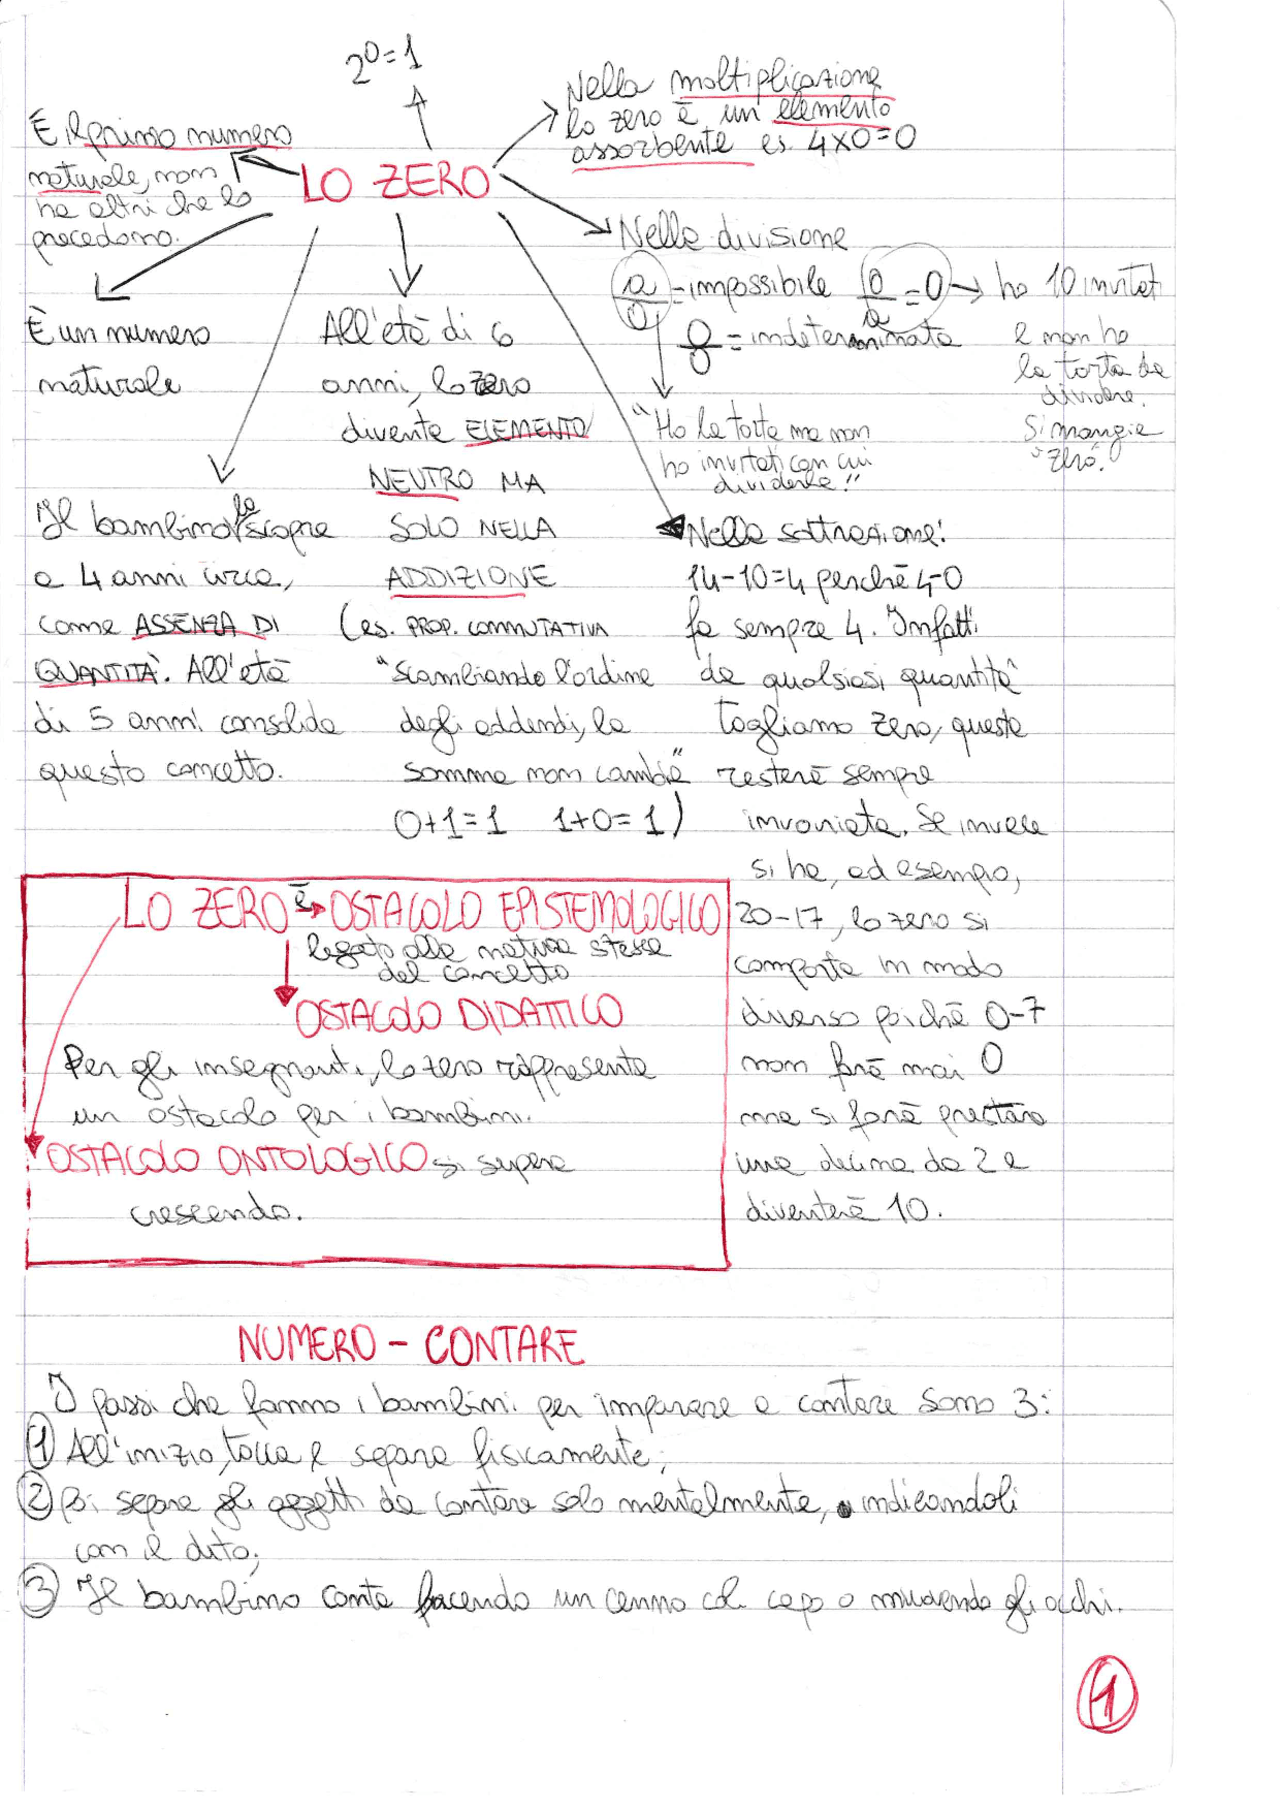 2⁰=1
Nella moltiplicazione
lo zero è un elemento
assorbente es. 4x0=0
È il primo numero
naturale, non
ha altri che lo
precedono.
LO ZERO
Nella divisione
a/0 = impossibile 0/a = 0 → ho 10 invitati
e non ho
la torta da
dividere.
Si mangia
"zero".
0/0 = indeterminata
"Ho la torta ma non
ho invitati con cui
dividerla."
È un numero
naturale
All'età di 6
anni, lo zero
diventa ELEMENTO
NEUTRO MA
SOLO NELLA
ADDIZIONE
(es. PROP. COMMUTATIVA
"Scambiando l'ordine
degli addendi, la
somma non cambia"
0+1=1 1+0=1)
Il bambino lo scopre
a 4 anni circa,
come ASSENZA DI
QUANTITÀ. All'età
di 5 anni consolida
questo concetto.
Nella sottrazione:
14-10=4 perchè 4-0
fa sempre 4. Infatti
da qualsiasi quantità
togliamo zero, questa
resterà sempre
invariata. Se invece
si ha, ad esempio,
20-17, lo zero si
comporta in modo
diverso poichè 0-7
non farà mai 0
ma si farà prestare
una decina da 2 e
diventerà 10.
LO ZERO è → OSTACOLO EPISTEMOLOGICO
legato alla natura stessa
del concetto
OSTACOLO DIDATTICO
Per gli insegnanti, lo zero rappresenta
un ostacolo per i bambini.
OSTACOLO ONTOLOGICO si supera
crescendo.
NUMERO - CONTARE
I passi che fanno i bambini per imparare a contare sono 3:
1 All'inizio, tocca e separa fisicamente;
2 Poi separa gli oggetti da contare solo mentalmente, indicandoli
con il dito;
3 Il bambino conta facendo un cenno col capo o muovendo gli occhi.
1